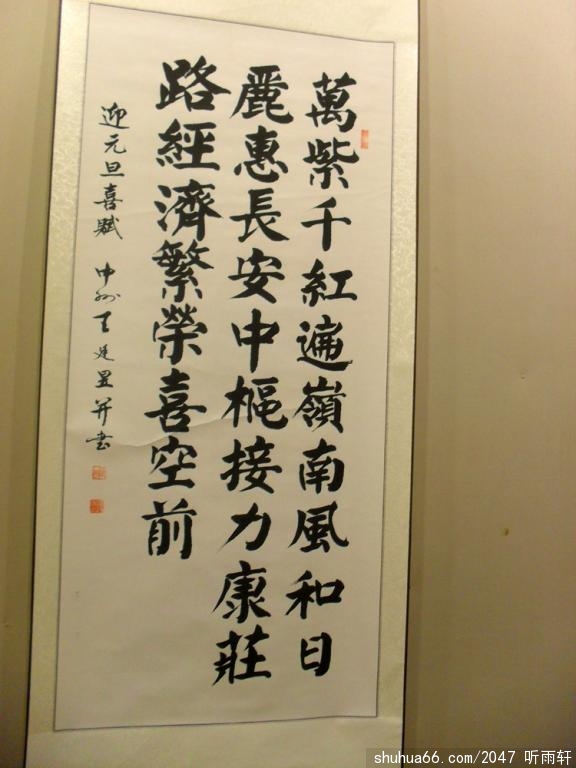 萬紫千紅遍嶺南風和日
麗惠長安中樞接力康莊
路經濟繁榮喜空前
迎元旦喜賦 中州王廷昱并書
shuhua66.com/2047 听雨轩